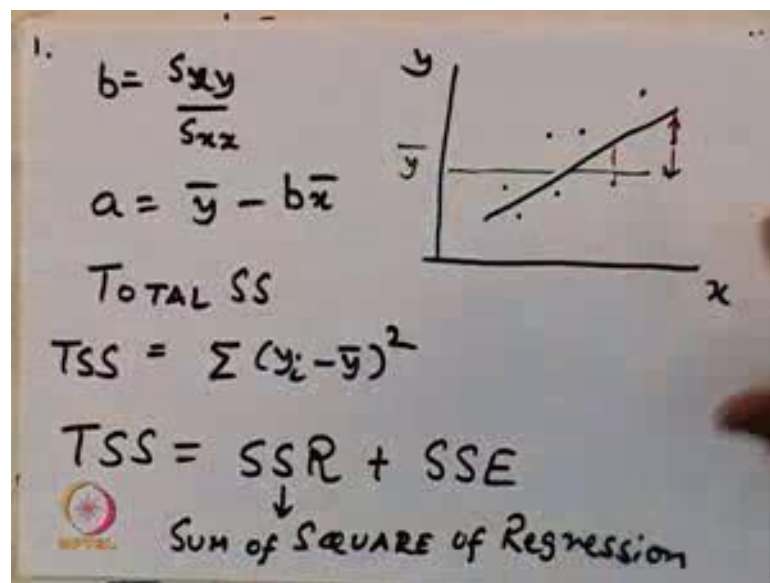 1.
b = Sxy / Sxx
a = ȳ - bx̄
TOTAL SS
TSS = Σ (yᵢ - ȳ)²
TSS = SSR + SSE
↓
SUM of SQUARE of Regression
y
ȳ
x
NPTEL